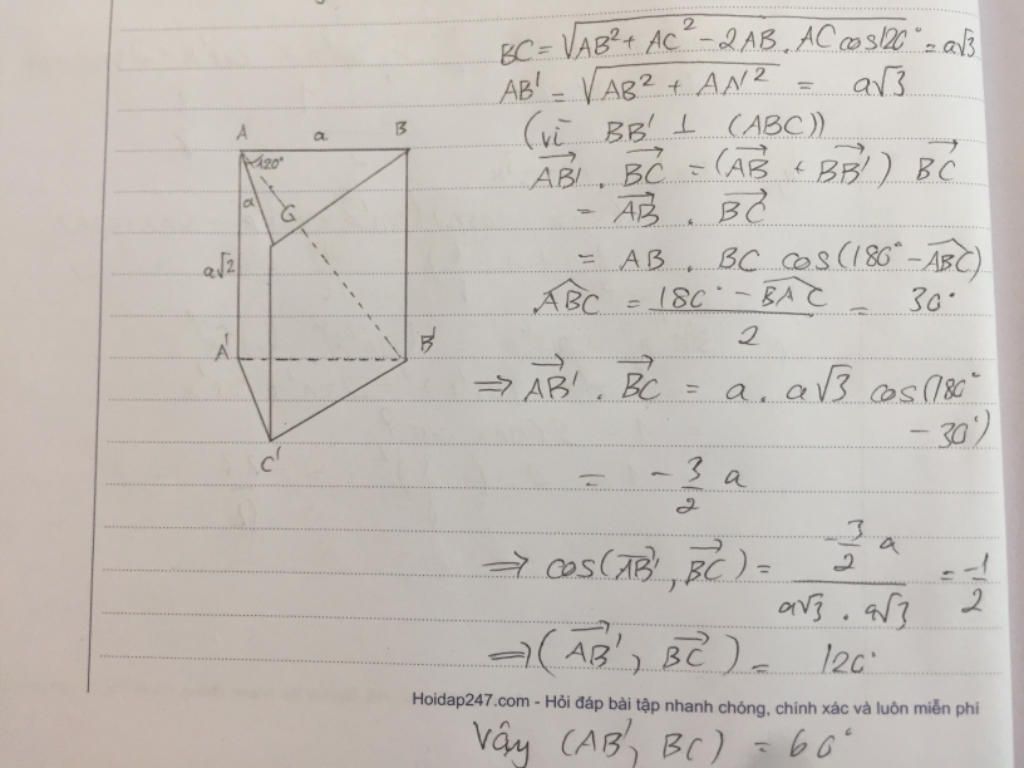 BC = √(AB² + AC² - 2AB . AC cos120°) = a√3
AB' = √(AB² + AA'²) = a√3
(vì BB' ⊥ (ABC))
A
a
B
120°
a
C
a√2
A'
B'
C'
→AB' . →BC = (→AB + →BB') →BC
= →AB . →BC
= AB . BC cos(180° - ^ABC)
^ABC = (180° - ^BAC)/2 = 30°
⇒ →AB' . →BC = a . a√3 cos(180°
- 30°)
= -3/2 a
⇒ cos(→AB', →BC) = (-3/2 a)/(a√3 . a√3) = -1/2
⇒ (→AB', →BC) = 120°
Hoidap247.com - Hỏi đáp bài tập nhanh chóng, chính xác và luôn miễn phí
Vậy (AB', BC) = 60°